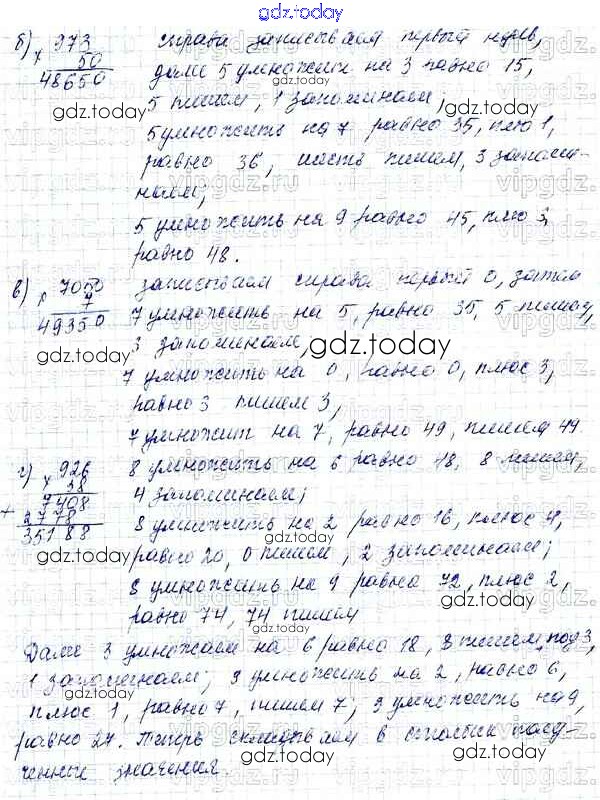 gdz.today
б) 973 справа записываем первый нуль,
х 50 далее 5 умножить на 3 равно 15,
48650 5 пишем, 1 запоминаем,
gdz.today gdz.today
5 умножить на 7 равно 35, плюс 1,
равно 36, шесть пишем, 3 запоми-
наем;
5 умножить на 9 равно 45, плюс 3,
равно 48.
в) 7050 записываем справа первый 0, затем
х 7
49350 7 умножить на 5, равно 35, 5 пишем,
gdz.today
3 запоминаем, gdz.today
7 умножить на 0, равно 0, плюс 3,
равно 3 пишем 3,
7 умножит на 7, равно 49, пишем 49
г) х 926 8 умножить на 6 равно 18, 8 пишем,
38 4 запоминаем;
gdz.today
+ 7408
2778 8 умножить на 2 равно 16, плюс 4,
35188
gdz.today
равно 20, 0 пишем, 2 запоминаем;
8 умножить на 9 равно 72, плюс 2,
равно 74, 74 пишем
gdz.today
Далее 3 умножаем на 6 равно 18, 8 пишем под
1 запоминаем; 3 умножить на 2, равно 6,
gdz.today
плюс 1, равно 7, пишем 7; 3 умножить на 9,
равно 27. Теперь складываем в столбик полу-
gdz.today
ченные значения.